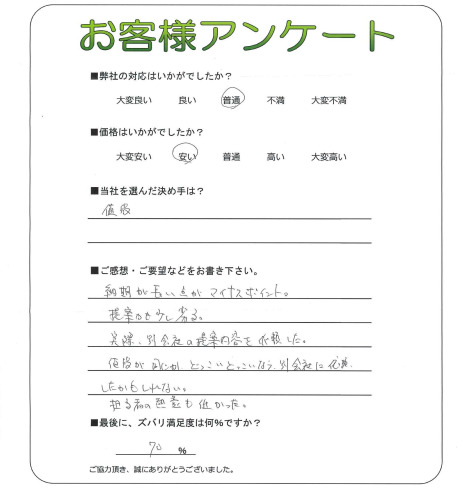 お客様アンケート
■弊社の対応はいかがでしたか？
大変良い 良い 普通 不満 大変不満
■価格はいかがでしたか？
大変安い 安い 普通 高い 大変高い
■当社を選んだ決め手は？
値段
■ご感想・ご要望などをお書き下さい。
納期が長い点がマイナスポイント。
提案力も少し劣る。
実際、別会社の提案内容を依頼した。
値段が どっこいどっこいなら、別会社に依頼
したかもしれない。
担当者の熱意も低かった。
■最後に、ズバリ満足度は何％ですか？
70 ％
ご協力頂き、誠にありがとうございました。